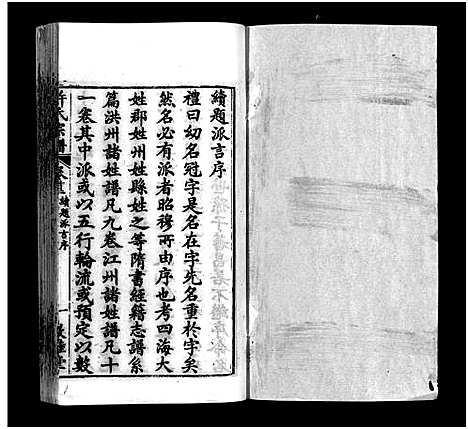 續題派言序
禮曰幼名冠字是名在字先名重於字矣
然名必有派者昭穆所由序也考四海大
姓郡姓州姓縣姓之等隋書經籍志譜系
篇洪州諸姓譜凡九卷江州諸姓譜凡十
一卷其中派或以五行輪流或預定以數
許氏宗譜
卷首 續題派言序
一